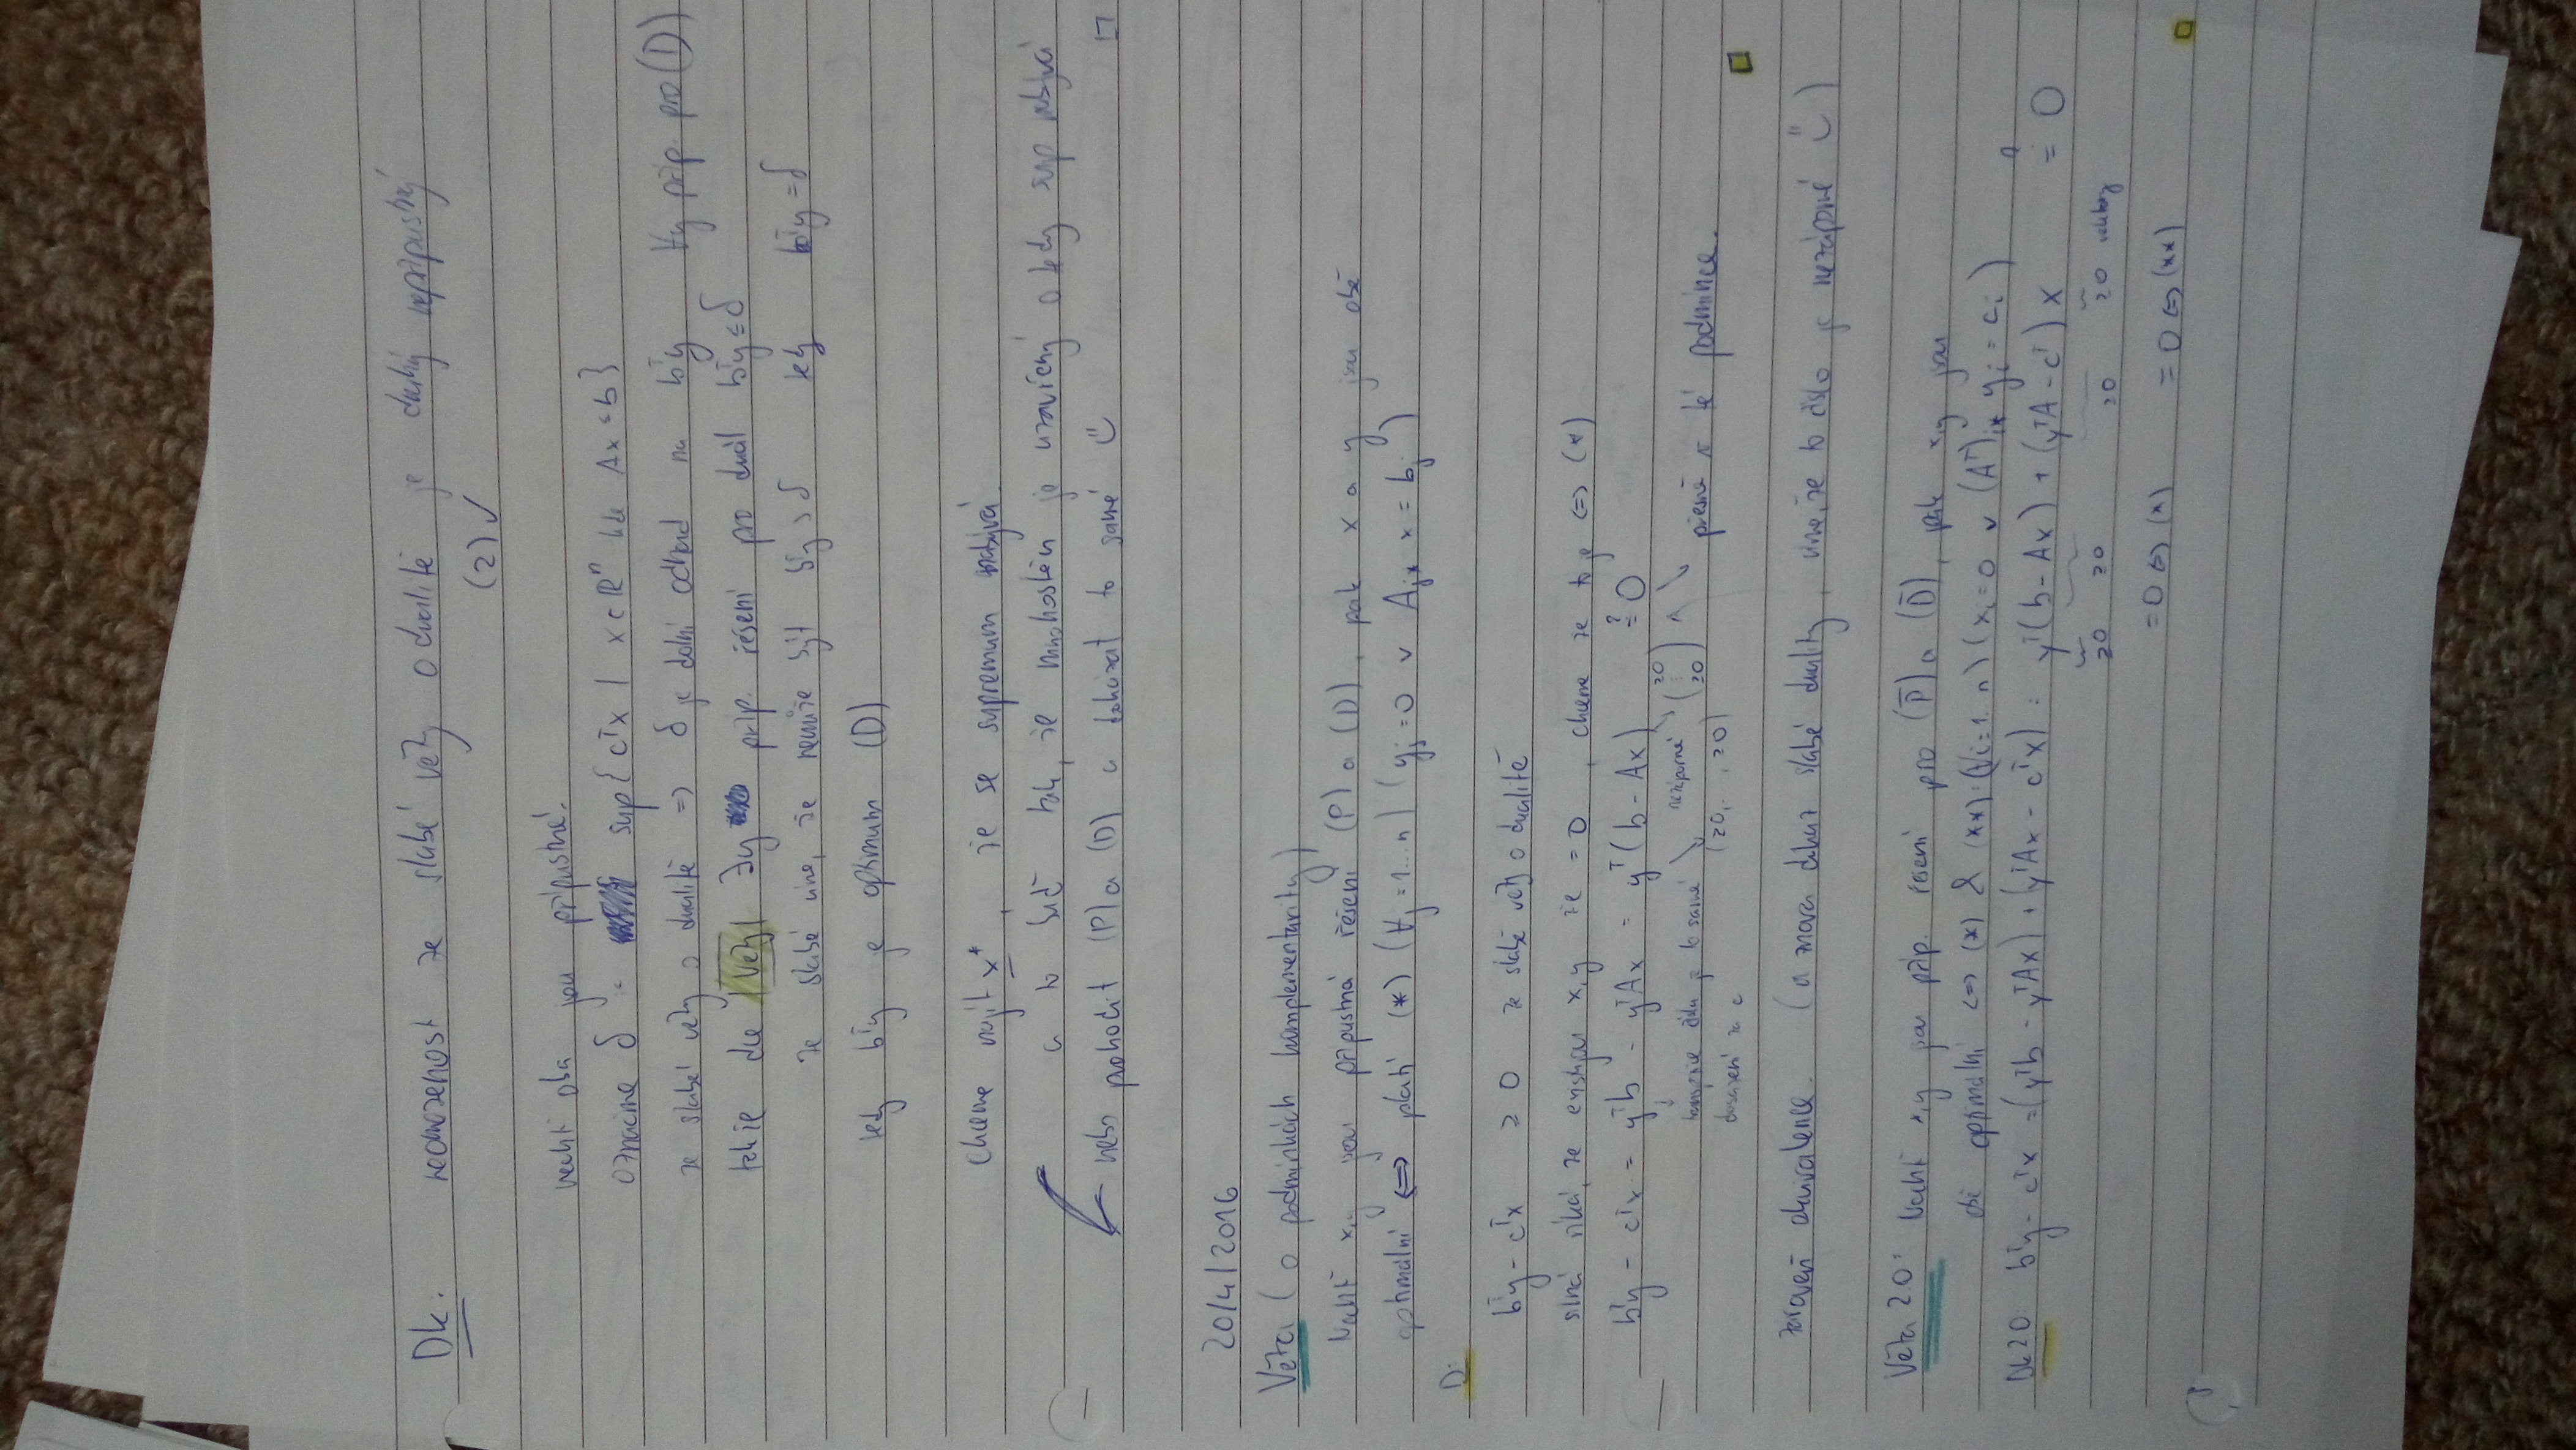 Dk. neomezenost ze slabé věty o dualitě je druhý nepřípustný
(2) ✓
nechť oba jsou přípustné.
označme δ := sup{cᵀx | x∈ℝⁿ kde Ax≤b}
ze slabé věty o dualitě => δ je dolní odhad na bᵀy ∀y příp. pro (D)
takže dle Věty ∃y příp. řešení pro duál bᵀy≤δ
ze slabé víme, že nemůže být bᵀy>δ tedy bᵀy=δ
tedy bᵀy je optimum (D)
Chceme najít x*, že se supremum nabývá
a to buď tak, že mnohostěn je uzavřený a tedy sup nabývá
nebo prohodit (P) a (D) a dokázat to samé ☺
20/4/2016
Věta (o podmínkách komplementarity)
Nechť x,y jsou přípustná řešení (P) a (D), pak x a y jsou obě
optimální <=> platí (*) (∀j=1...n) (yj=0 ∨ Aj* x = bj)
D:
bᵀy - cᵀx ≥ 0 ze slabé věty o dualitě
silná říká, že existují x,y že = 0, chceme že to je <=> (*)
bᵀy - cᵀx = yᵀb - yᵀAx = yᵀ(b - Ax) ≟ 0
transpozice čísla je to samé
dosazení za c
nezáporné
(≥0,..,≥0)
(≥0 ⋮ ≥0)
přesně v té podmínce.
zároveň ekvivalence. (a znova důkaz slabé duality, víme, že to číslo je nezáporné ☺)
Věta 20: Nechť x,y jsou příp. řešení pro (P̄) a (D̄), pak x,y jsou
obě optimální <=> (*) & (**): (∀i=1..n) (xi=0 ∨ (Aᵀ)i* yi = ci)
Dk 20: bᵀy - cᵀx = (yᵀb - yᵀAx) + (yᵀAx - cᵀx) = yᵀ(b - Ax) + (yᵀA - cᵀ)x ≟ 0
≥0 ≥0 ≥0 ≥0 vektory
=0 <=> (*) =0 <=> (**)